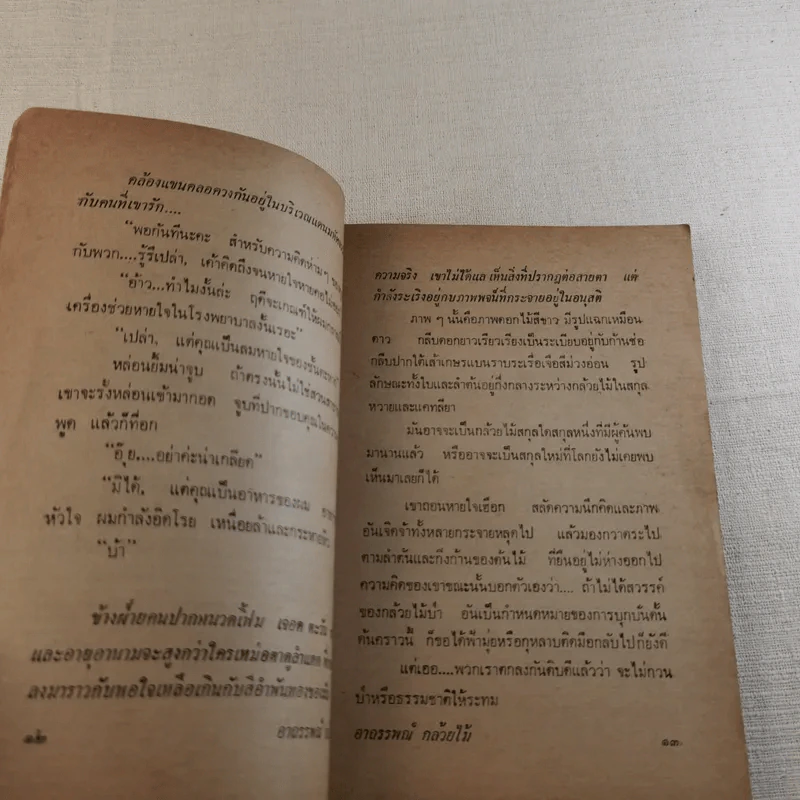 คล้องแขนคลอควงกันอยู่ในบริเวณแดนมหัศ
กับคนที่เขารัก....
“พอกันทีนะคะ สำหรับความคิดห่ามๆ
กับพวก....รู้รึเปล่า, เค้าคิดถึงจนหายใจหายคอไม่
“อ้าว....ทำไมงั้นล่ะ ฤดีจะเกณฑ์ให้ผม
เครื่องช่วยหายใจในโรงพยาบาลงั้นเรอะ”
“เปล่า, แต่คุณเป็นลมหายใจของชั้นคะ
หล่อนยิ้มน่าจูบ ถ้าตรงนั้นไม่ใช่สวน
เขาจะรั้งหล่อนเข้ามากอด จูบที่ปากขอบคุณในความ
พูด แล้วก็ที่อก
“อุ๊ย....อย่าค่ะน่าเกลียด”
“มิได้, แต่คุณเป็นอาหารของผม
หัวใจ ผมกำลังอิดโรย เหนื่อยล้าและกระหาย
“บ้า”
ข้างฝ่ายคนปากหนวดเฟิ้ม เจอด ตะวัน
และอายุอานามจะสูงกว่าใครเหม่อตาดูลำแดด
ลงมาราวกับพอใจเหลือเกินกับสีอำพันทองของ
๑๒
อาถรรพณ์
ความจริง เขาไม่ได้แลเห็นสิ่งที่ปรากฏต่อสายตา แต่
กำลังระเริงอยู่กับภาพพจน์ที่กระจายอยู่ในอนุสติ
ภาพ ๆ นั้นคือภาพดอกไม้สีขาว มีรูปแฉกเหมือน
ดาว กลีบดอกยาวเรียวเรียงเป็นระเบียบอยู่กับก้านช่อ
กลีบปากใต้เส้าเกสรแบนราบระเรื่อเจือสีม่วงอ่อน รูป
ลักษณะทั้งใบและลำต้นอยู่กึ่งกลางระหว่างกล้วยไม้ในสกุล
หวายและแคทลียา
มันอาจจะเป็นกล้วยไม้สกุลใดสกุลหนึ่งที่มีผู้ค้นพบ
มานานแล้ว หรืออาจจะเป็นสกุลใหม่ที่โลกยังไม่เคยพบ
เห็นมาเลยก็ได้
เขาถอนหายใจเฮือก สลัดความนึกคิดและภาพ
อันเจิดจ้าทั้งหลายกระจายหลุดไป แล้วมองกวาดระไป
ตามลำต้นและกิ่งก้านของต้นไม้ ที่ยืนอยู่ไม่ห่างออกไป
ความคิดของเขาขณะนั้นบอกตัวเองว่า.... ถ้าไม่ได้สวรรค์
ของกล้วยไม้ป่า อันเป็นกำหนดหมายของการบุกบั่นดั้น
ด้นคราวนี้ ก็ขอได้ฟ้ามุ่ยหรือกุหลาบติดมือกลับไปก็ยังดี
แต่เออ....พวกเราตกลงกันดิบดีแล้วว่า จะไม่กวน
ป่าหรือธรรมชาติให้ระทม
อาถรรพณ์ กล้วยไม้
๑๓